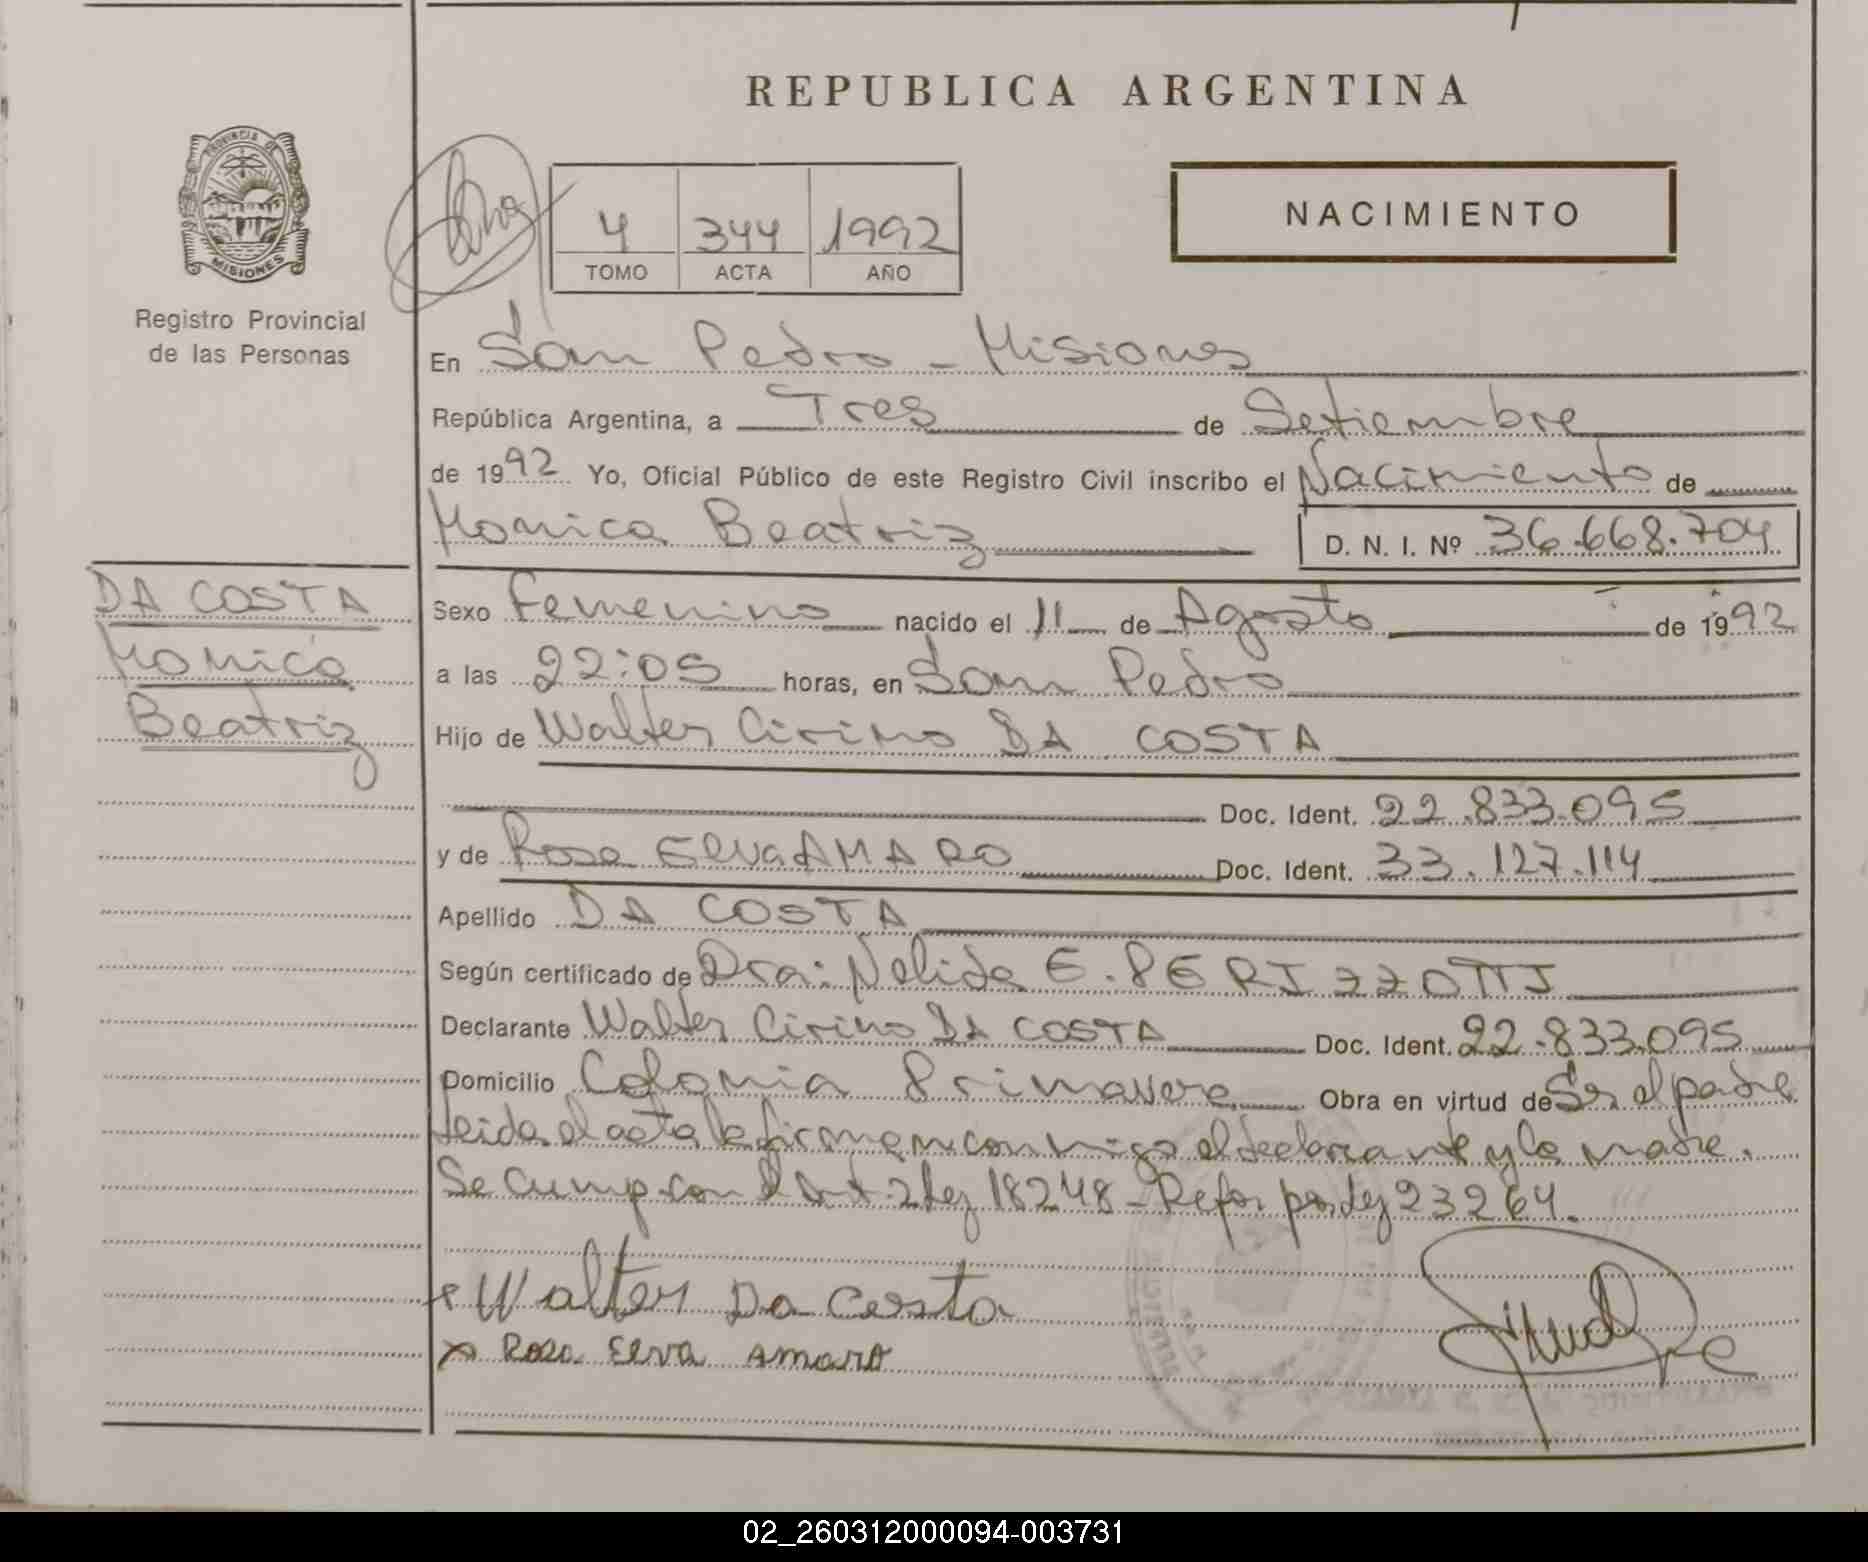 REPUBLICA ARGENTINA
PROVINCIA DE
MISIONES
Registro Provincial
de las Personas
4 344 1992
TOMO ACTA AÑO
NACIMIENTO
En San Pedro - Misiones
República Argentina, a Tres de Setiembre
de 1992 Yo, Oficial Público de este Registro Civil inscribo el Nacimiento de
Monica Beatriz D. N. I. Nº 36.668.704
DA COSTA
Monica
Beatriz
Sexo Femenino nacido el 11 de Agosto de 1992
a las 22:05 horas, en San Pedro
Hijo de Walter Cirino DA COSTA
Doc. Ident. 22.833.095
y de Rosa Elva AMARO Doc. Ident. 33.127.114
Apellido DA COSTA
Según certificado de Dra: Nelida E. PERIZZOTTI
Declarante Walter Cirino DA COSTA Doc. Ident. 22.833.095
Domicilio Colonia Primavera Obra en virtud de Ser el padre
Leida el acta la firman conmigo el declarante y la madre.
Se cump. con el Art. 2 Ley 18248 - Refor por Ley 23264.
x Walter Da Costa
x Rosa Elva Amaro
02_260312000094-003731